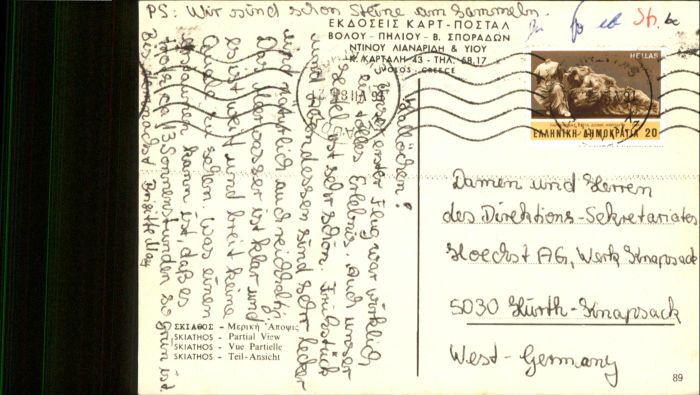 PS: Wir sind schon Steine am Sammeln.
ΕΚΔΟΣΕΙΣ ΚΑΡΤ - ΠΟΣΤΑΛ
ΒΟΛΟΥ - ΠΗΛΙΟΥ - Β. ΣΠΟΡΑΔΩΝ
ΝΤΙΝΟΥ ΛΙΑΝΑΡΙΔΗ & ΥΙΟΥ
Κ. ΚΑΡΤΑΛΗ 43 - ΤΗΛ. 58.17
VOLOS - GREECE
HELLAS
ΕΛΛΗΝΙΚΗ ΔΗΜΟΚΡΑΤΙΑ 20
Hallöchen!
Unser erster Flug war wirklich
ein tolles Erlebnis. Auch unser
Hotel ist sehr schön. Frühstück
und Abendessen sind sehr lecker
und natürlich auch reichhaltig.
Das Meerwasser ist klar und
es ist weit und breit keine
Qualle zu sehen. Was einen
erstaunen kann ist, daß es
trotz ca. 13 Sonnenstunden so grün ist.
Bis demnächst Brigitte May
Damen und Herren
des Direktions-Sekretariates
Hoechst AG, Werk Knapsack
5030 Hürth-Knapsack
West-Germany
ΣΚΙΑΘΟΣ - Μερική Ἄποψις
SKIATHOS - Partial View
SKIATHOS - Vue Partielle
SKIATHOS - Teil-Ansicht
89